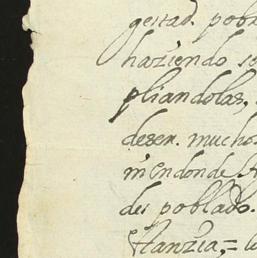 gestad. pobl
haziendo so
pliandolas,
deser. mucho
en donde
des poblado.
stanzia,=